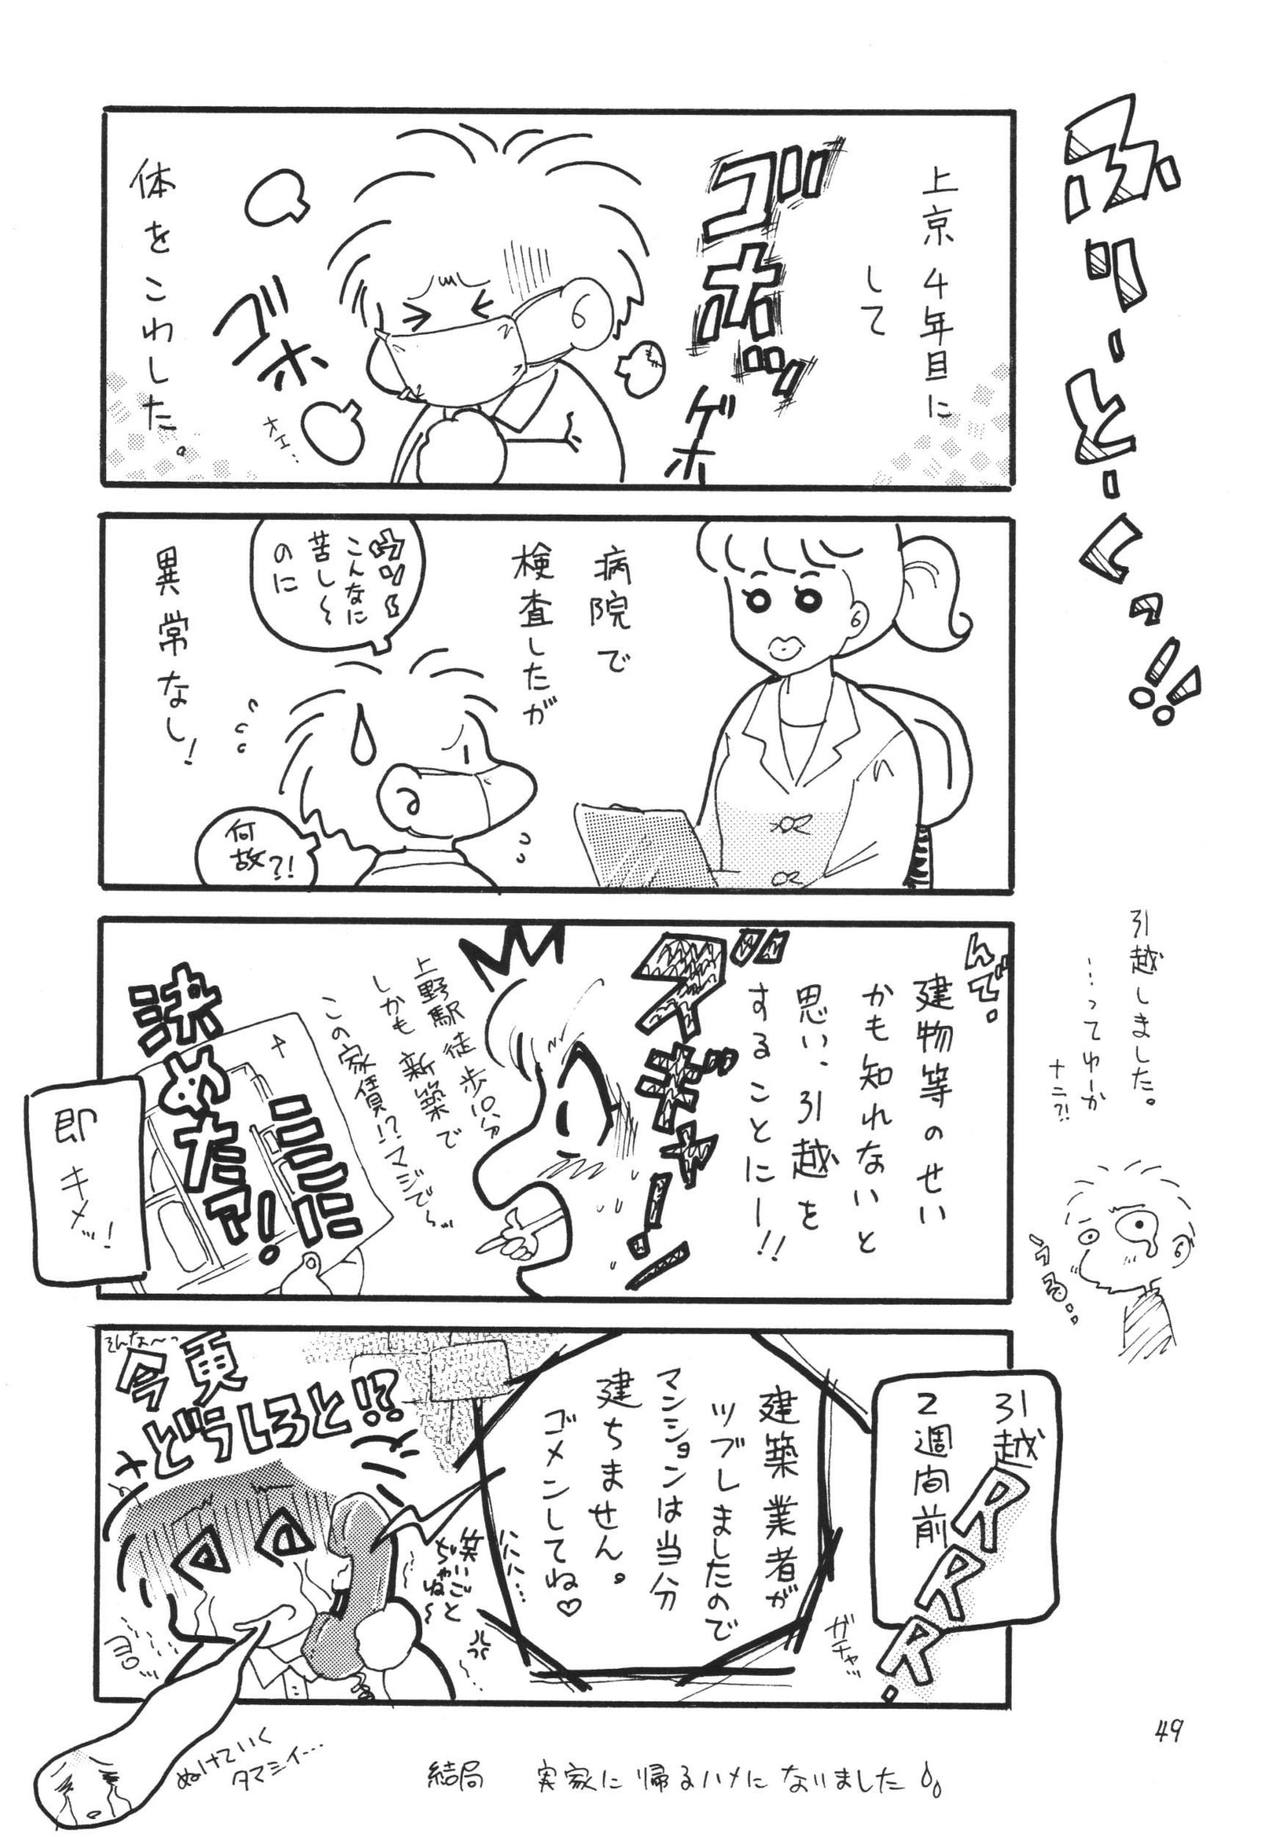 ふりーとーくっ!!
引越しました。
…ってゆーか
ナニ?!
うるる..
上京4年目に
して
ゴホッ
ゲホ
ゴホ
オエ..
体をこわした。
病院で
検査したが
異常なし!
ウソ!
こんなに
苦し〜
のに
何故?!
んで。
建物等のせい
かも知れないと
思い、引越を
することにー!!
ズギャーン
上野駅徒歩10分
しかも新築で
この家賃!?マジで〜
ここに
決めたァ!
即キメッ!
引越
2週間前
RRRR.
ガチャッ
建築業者が
ツブレましたので
マンションは当分
建ちません。
ゴメンしてね♡
ハハハ…
笑いごと
ちゃうね〜
そんな〜っ
今更
どうしろと!?
ヨロ
ぬけていく
タマシイ…
結局 実家に帰るハメになりました
49